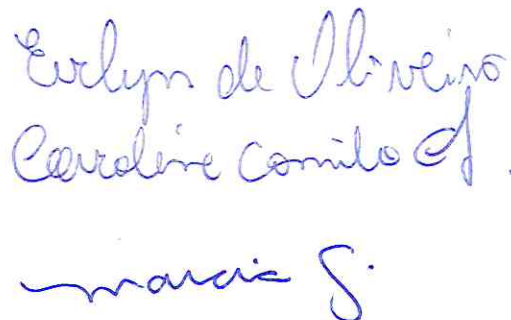 Evelyn de Oliveira
Caroline Camilo
marcia S.